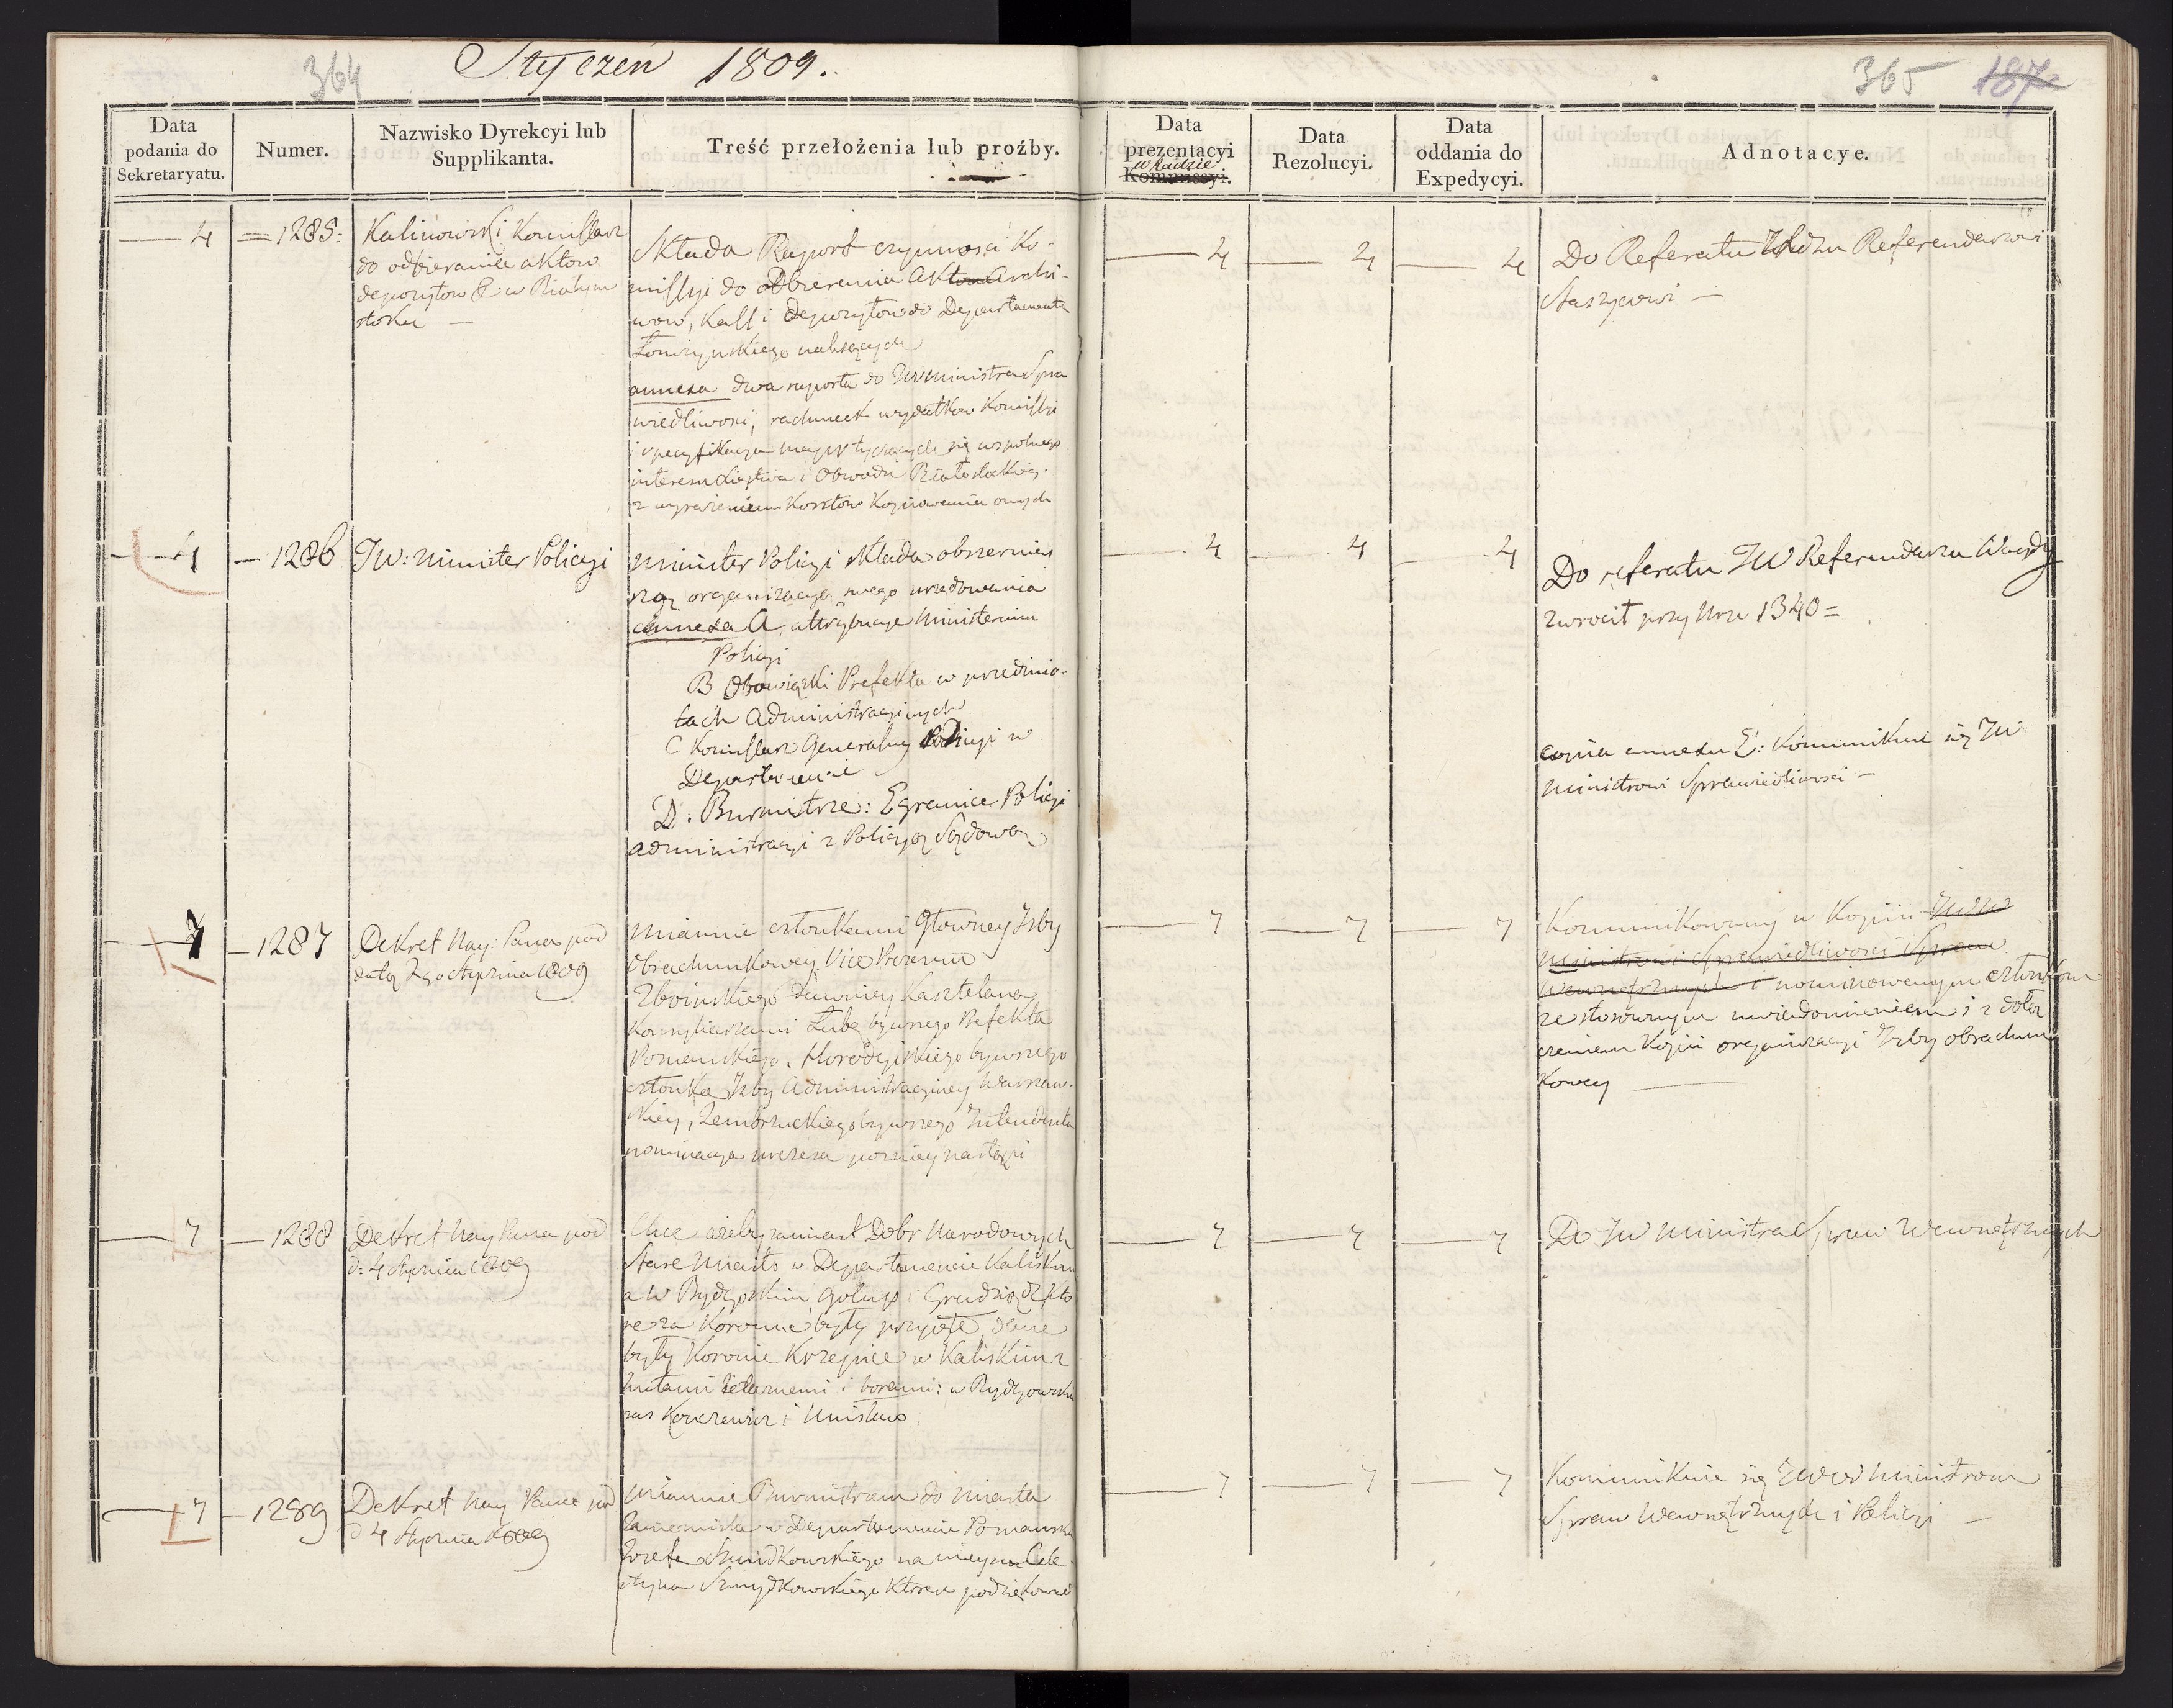 364
Styczeń 1809.
365 187
Data podania do Sekretaryatu.
Numer.
Nazwisko Dyrekcyi lub Supplikanta.
Treść przełożenia lub proźby.
Data prezentacyi w Radzie Kommissyi.
Data Rezolucyi.
Data oddania do Expedycyi.
Adnotacye.
4
1285
Kalinowski Komissarz
do odbierania aktow
depozytow & w Białym
stoku
Składa Raport czynności Ko-
missyi do odbierania Aktow Archi-
wow, Kass i Depozytow do Departamentu
Łomżyńskiego należących
annexa dwa raporta do JW Ministra Spra
wiedliwości, rachunek wydatkow Komissyi
i specyfikacya mapp tyczących się wspolnego
interesu Xięstwa i Obwodu Białostockieg.
z wyrażeniem Kosztow Kopiowania onych
4
4
4
Do Referatu Referendarzowi
Staszycowi
4
1286
JW: Minister Policyi
Minister Policyi składa obszerniey
szą organizacyą swego urzędowania
annexa A. attrybucye Ministerium
Policyi
B Obowiązki Prefekta w przedmio-
tach Administracyinych
C Komissarz Generalny Policyi w
Departamencie
D: Burmistrze: E granice Policyi
administracyi z Policyą Sądową
4
4
4
Do referatu JW Referendarza Woydy
zwrocił przy Nrze 1340 =
Copia annexu E: Kommunikuie się JW
Ministrowi Sprawiedliwości
7
1287
Dekret Nay: Pana pod
datą 2go Stycznia 1809
Mianuie członkami Głowney Izby
Obrachunkowey. Vice Prezesem
Zboinskiego dawniey Kasztelana
Konsyliarzami Łubę bywszego Prefekta
Poznanskiego, Horodyskiego bywszego
członka Izby Administracyiney Warszaw-
skiey, bywszego Intendenta
nominacya prezesa pozniey nastąpi
7
7
7
Kommunikowany w Kopiii JWW
Ministrowi Sprawiedliwości Spraw
Wewnętrznych i nominowanym członkom
ze stosownym uwiadomieniem i z dołą
czeniem Kopii organizacyi Izby obrachun
kowey
7
1288
Dekret Nay Pana pod
d: 4 Stycznia 1809
Chce ażeby zamiast Dobr Narodowych
Stare Miasto w Departamencie Kaliskim
a w Bydgoskim Golup i Grudziądz kto
re za Koronne były przyięte, dane
były Koronie Krzepice w Kaliskim z
hutami żelaznemi i borami: w Bydgoskim
zas i Unisław
7
7
7
Do JW Ministra Spraw Wewnętrznych
7
1289
Dekret Nay Pana pod
d 4 Stycznia 1809
Mianuie Burmistrzem do miasta
w Departamencie Poznansk
Jozefa Szmidkowskiego na mieysce Cele
styna Szmydkowskiego ktoren podziękował
7
7
7
Kommunikuie się JWW Ministrom
Spraw Wewnętrznych i Policyi